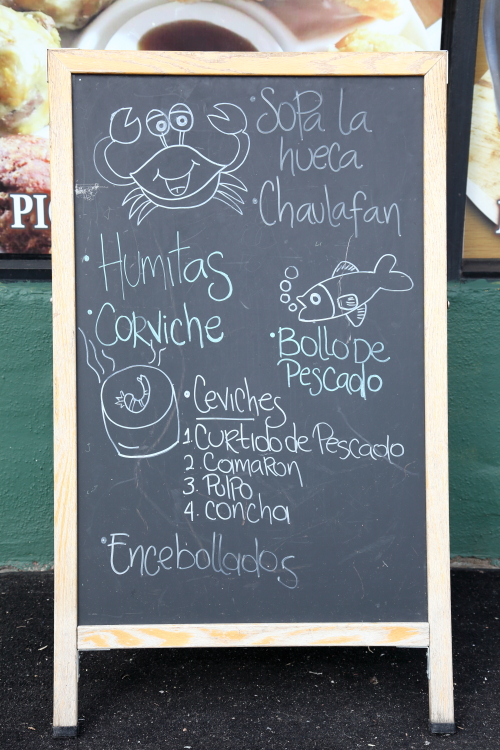 • Sopa la
hueca
• Chaulafan
• Humitas
• Corviche
• Bollo De
Pescado
• Ceviches
1. Curtido de Pescado
2. Camaron
3. Pulpo
4. Concha
• Encebollados
PI